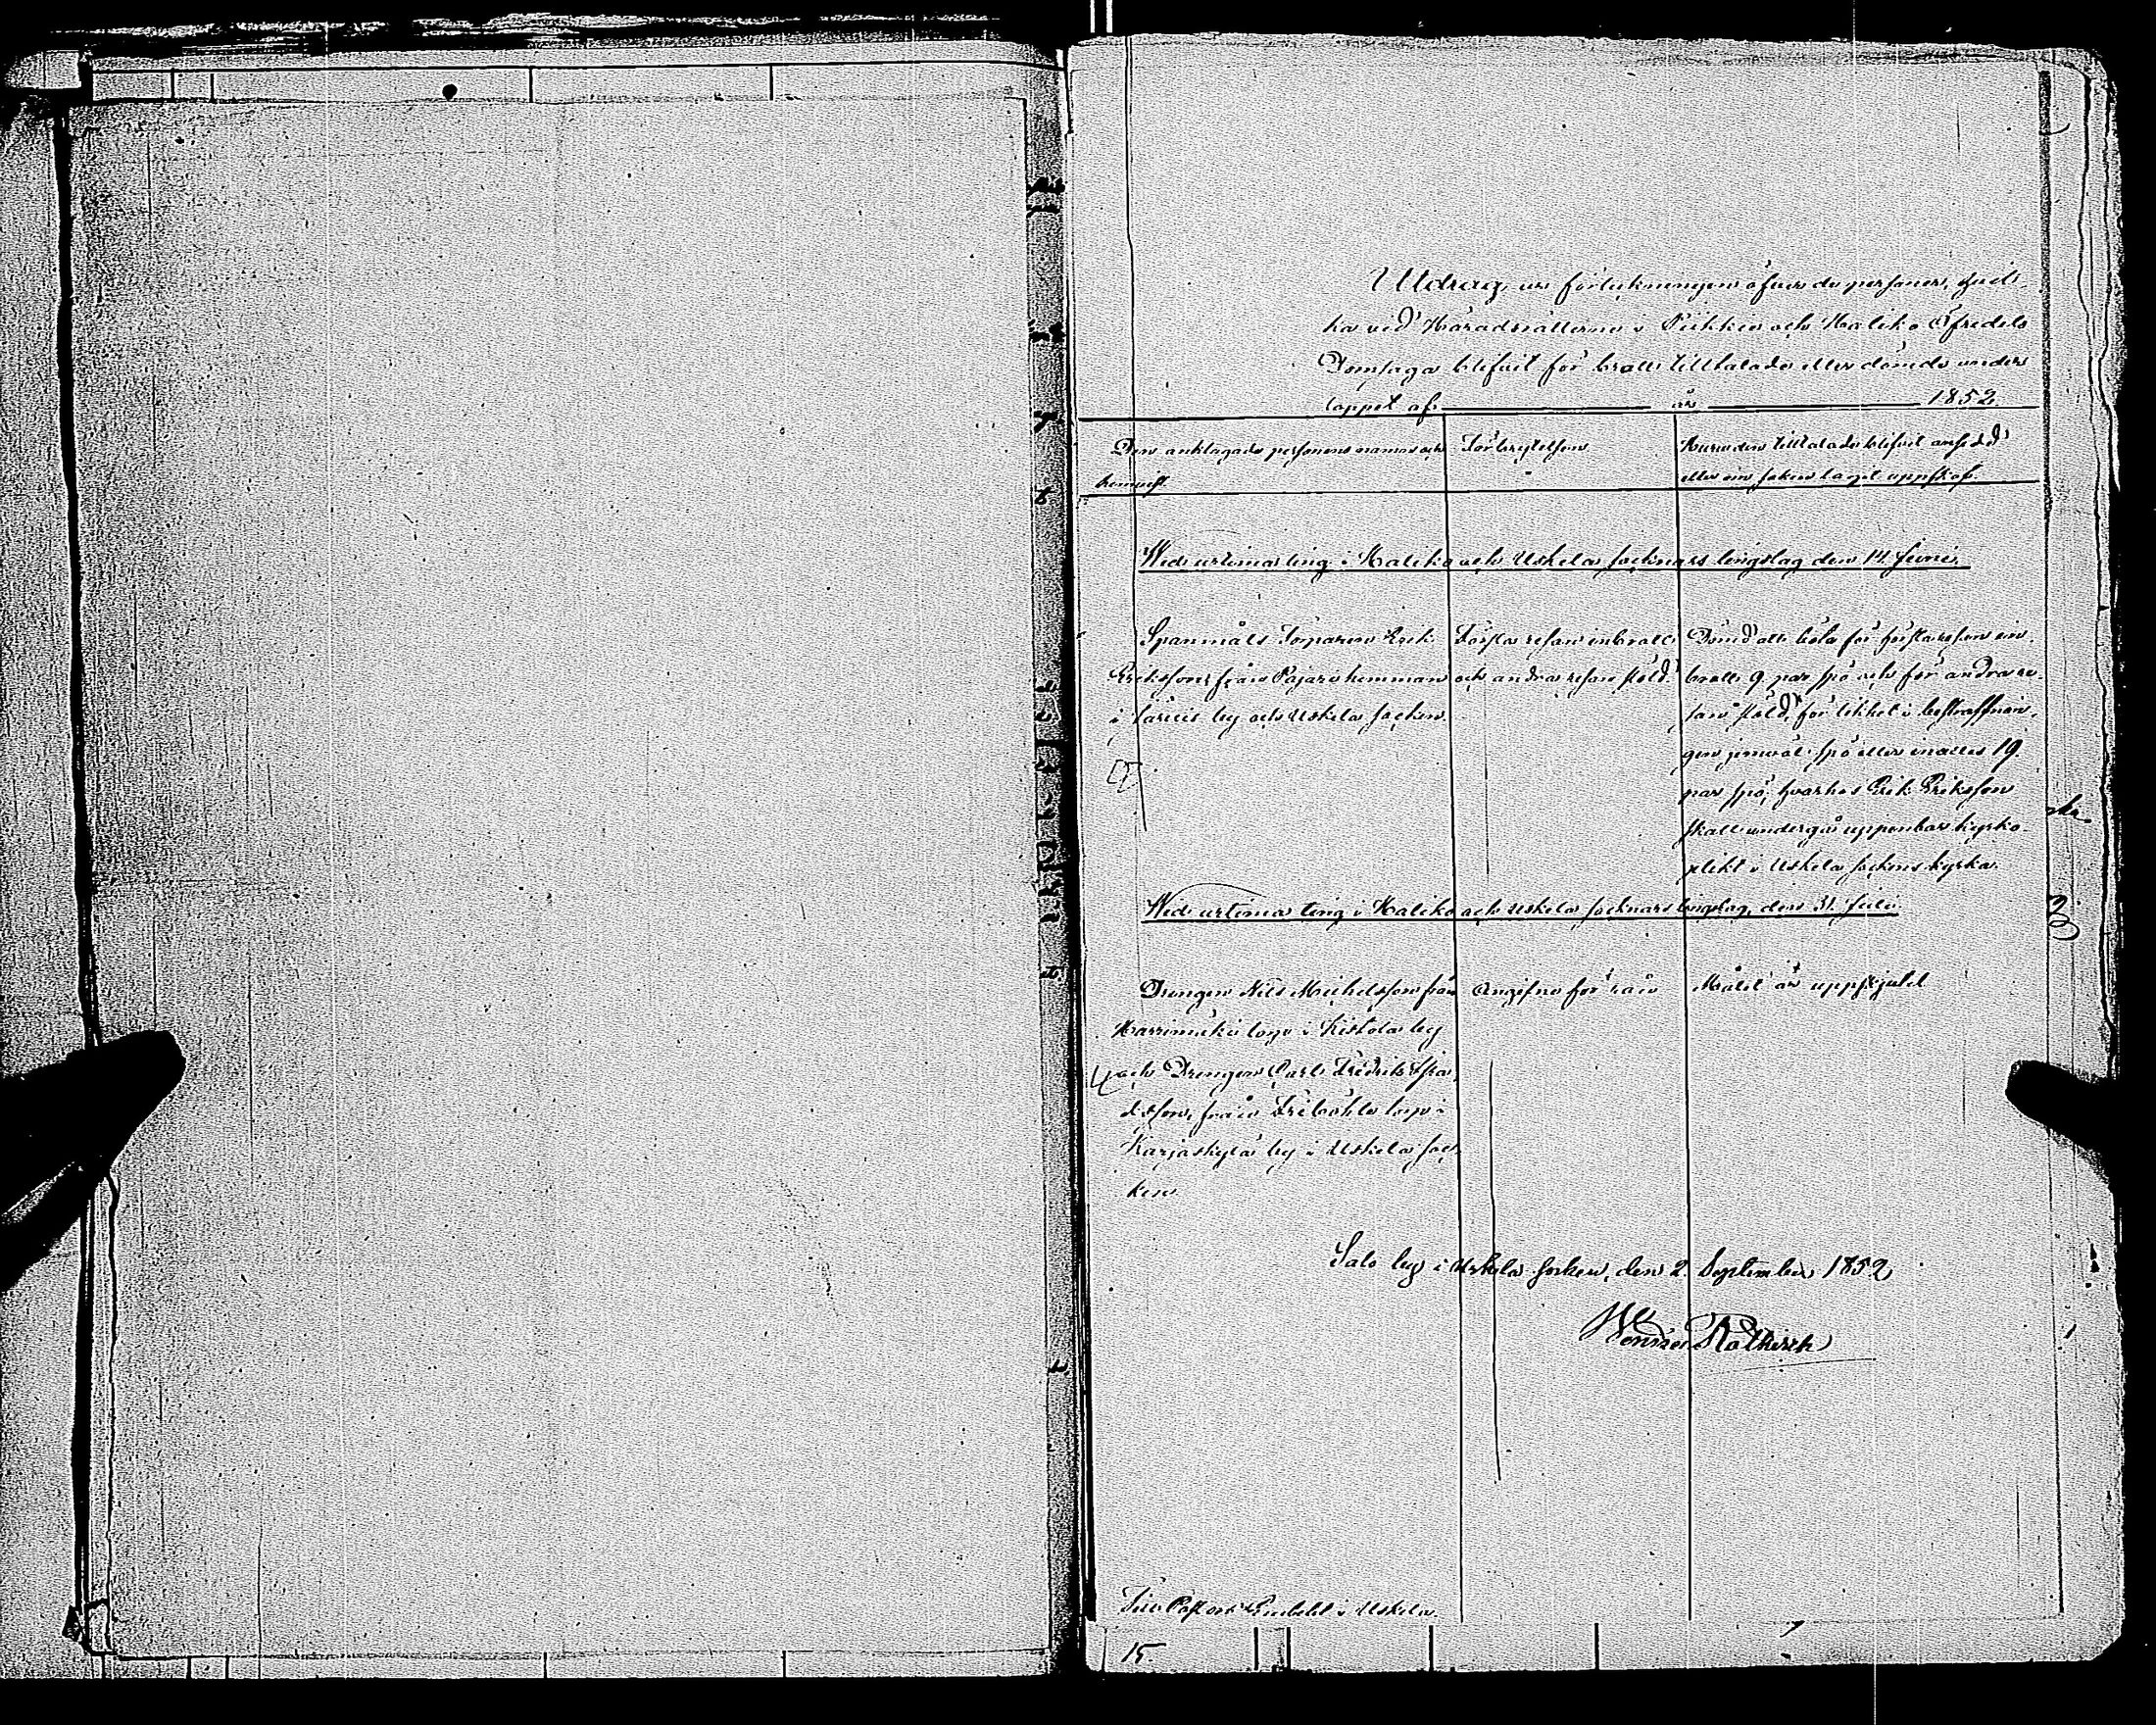 Utdrag ur förtekningen öfver de personer, hvil-
ka ved Häradsrätterne i Piikkie och Haliko Öfredels
Domsaga blifvit för brott tilltalade eller dömde under
loppet af år 1852.
Den anklagade personens namn och hemvist.
Förbrytelsen
Huru den tilltalade blifvit ansedd
eller om saken tagit uppskof.
Wid urtima ting i Haliko och Uskela socknars tingslag den 14 Juni.
Spanmåls Torparen Erik
Eriksson från Pajari hemman
i by och Uskela socken.
Första resan inbrott
och andra resan stöld.
Dömd att böta för första resan in-
brott 9 par spö och för andra re-
san stöld, för likhet i bestraffnin-
gen jemväl spö eller inalles 19
par spö, hvarhos Erik Eriksson
skall undergå uppenbar kyrko-
plikt i Uskela sockens kyrka.
Wid urtima ting i Haliko och Uskela socknars tingslag, den 31 Juli.
Drengen Nils Michelsson från
Harrimäki torp i Kistola by
och Drengen Carl Fredrik
från torp i
Karjaskylä by i Uskela soc-
ken
Angifne för rån
Målet är uppskjutet
Salo by i Uskela socken, den 2 September 1852
Rotkirch
Till Pastors Embetet i Uskela.
15.